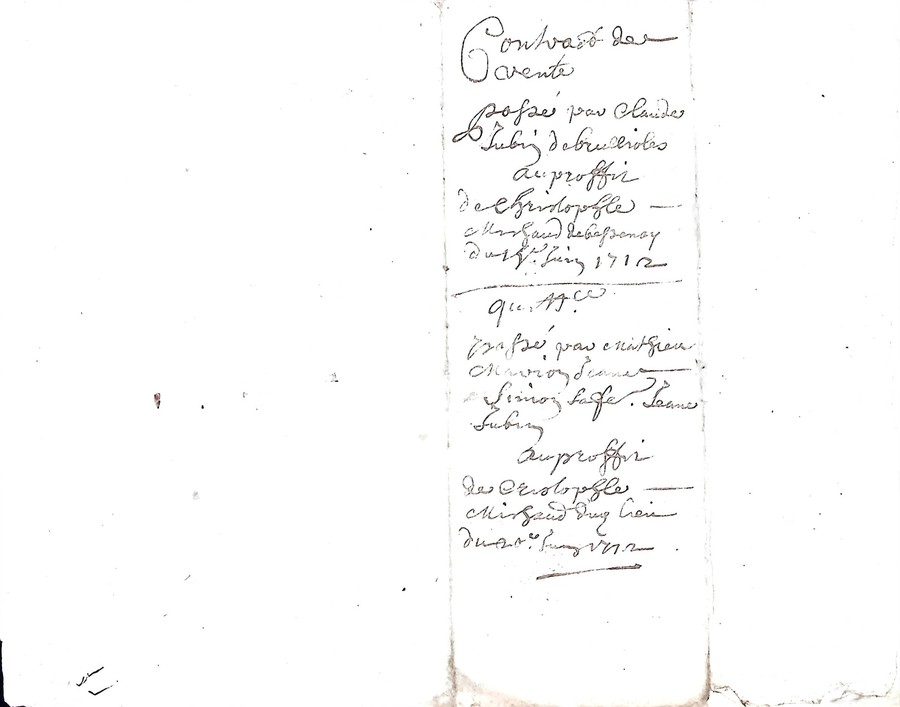 Contract de
vente
passé par Claude
Jubin de brullioles
au proffit
de Christophle
Mishaud de bessenay
du Juin 1712
quittce
passé par Mathieu
Marion Jeanne
Simon sa fe. Jeane
Jubin
au proffit
de Cristophle
Mishaud dud lieu
du 20e Juin 1712